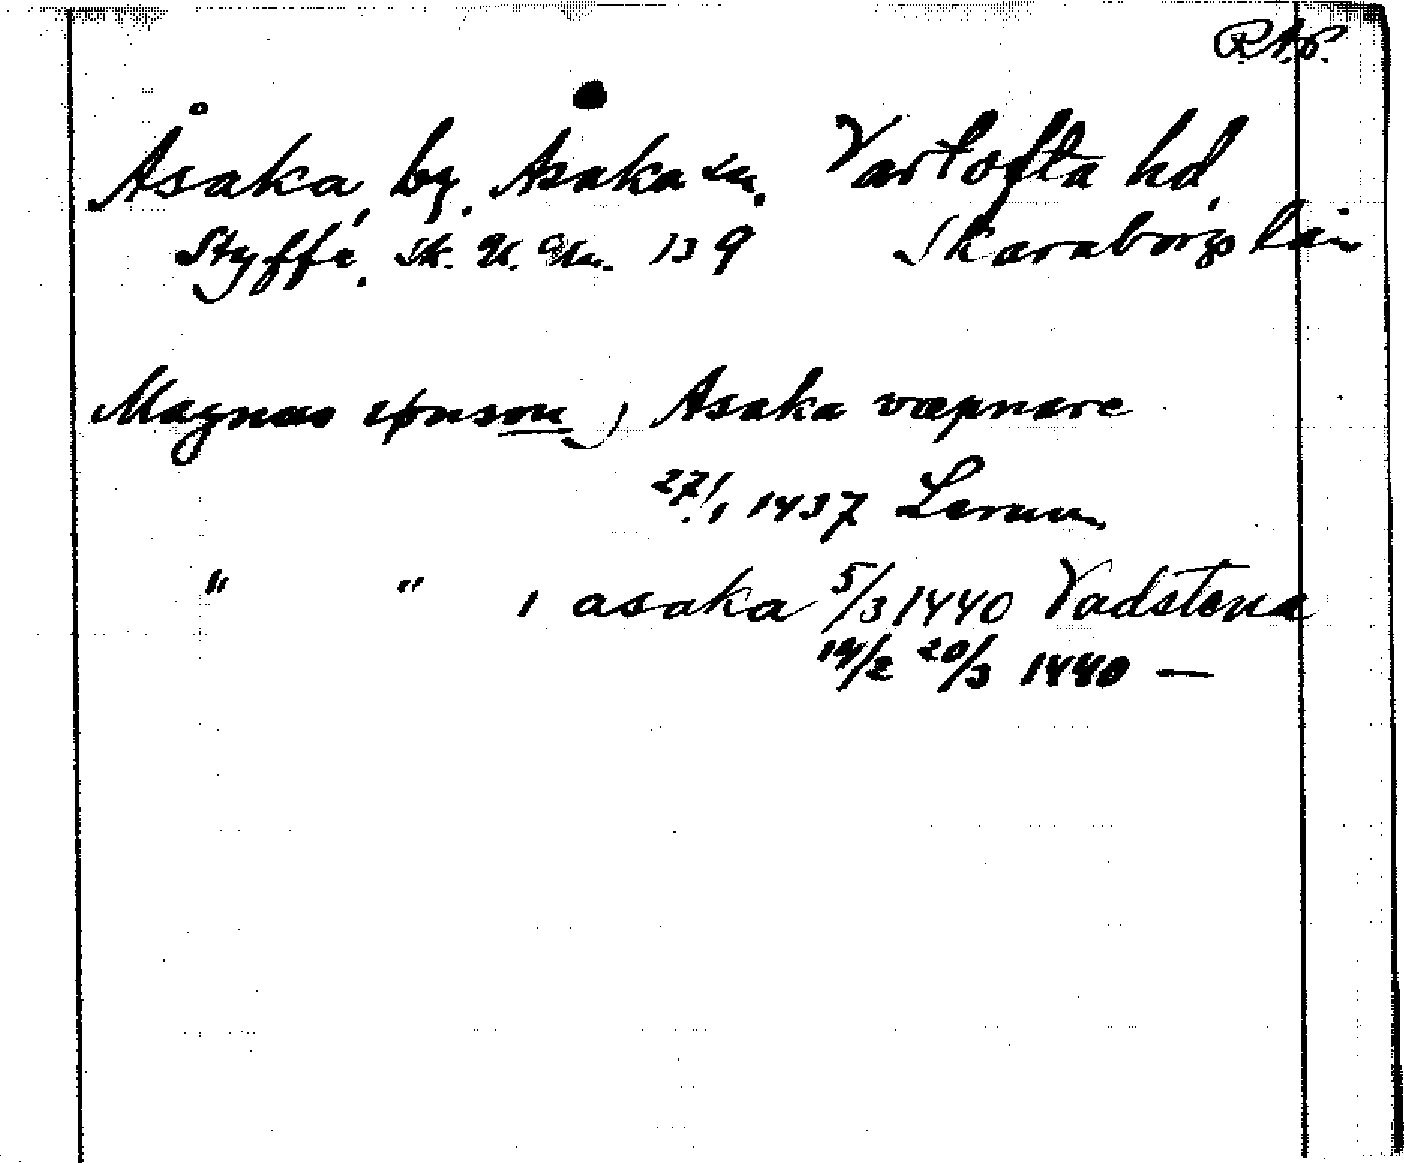 R.A.P.
Åsaka, by. Åsaka sn. Vartofta hd,
Styffe, Sk. U. Un. 139 Skaraborgs län
Magnus jønson j Asaka væpnare
27/1 1437 Lerum
" " i asaka 5/3 1440 Vadstena
14/2 20/3 1440 —